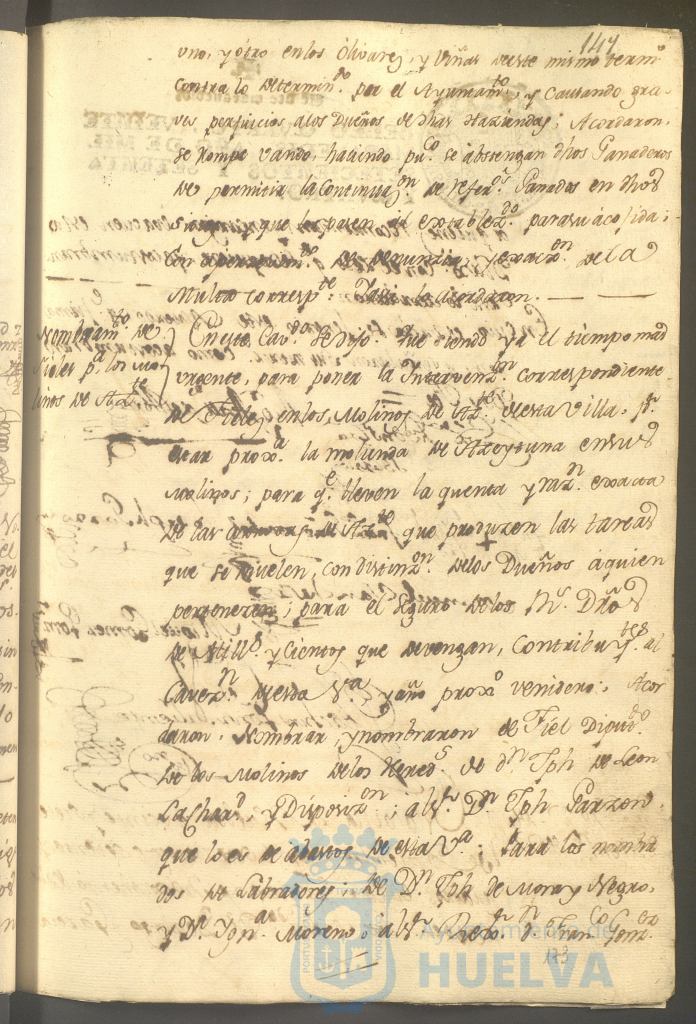 147
uno, y otro en los Olivares, y Viñas de este mismo term.º
contra lo determin.do por el Ayuntam.to, y causando gra-
ves perjuicios a los Dueños de dhas Haziendas; Acordaron,
se Rompe vando, haciendo pu.co se abstengan dhos Ganaderos
de permitir la Continuaz.on de refer.s Ganados en dhos
sitios y que los pasen al
de denunzia, y exacz.on de la
Multa corresp.te: Y asi lo acordaron.
Nombram.to de
Fieles p.a los Mo-
linos de Az.te
En este Cav.do se dijo: Que siendo ya el tiempo mas
urgente, para poner la Intervenz.on correspondiente
de Fieles en los Molinos de Az.te de esta Villa, p.r
estar prox.a la molienda de Azeytuna en sus
Molinos; para q.e lleven la quenta y raz.n exacta
de las arrovas de Az.te que produzen las tareas
que se muelen, con distinz.on de los Dueños a quien
pertenezen; para el seguro de los R.s Dros
de Mill.s y Cientos que devengan, Contribuy.tes al
Cavez.n de esta V.a y año prox.o venidero: Acor-
daron, Nombrar, y nombraron de Fiel Diput.do
de los Molinos de los Hered.s de d.n Jph de Leon
Lachar, y Disposiz.on; al S.r D.n Jph Garzon,
que lo es de abastos de esta V.a: Para los nombra-
dos de Labradores; de D.n Jph de Mora y Negro,
y D.n Ign.o Moreno; al S.r Rex.or d.n Fran.co Gonz.ez
173
Ayuntamiento de
HUELVA